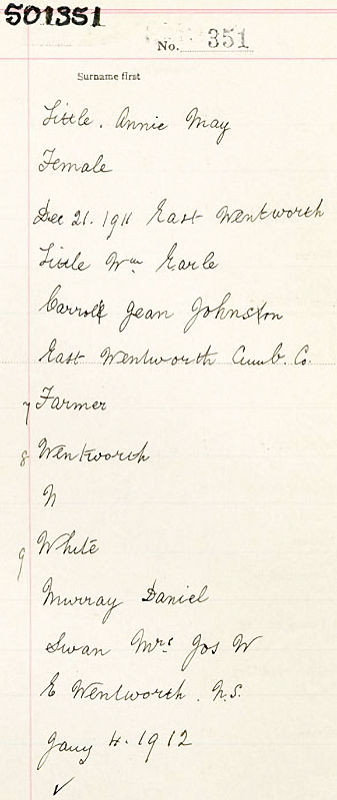 501351
No. 351
Surname first
Little. Annie May
Female
Dec 21. 1911 East Wentworth
Little Wm Earle
Carroll Jean Johnston
East Wentworth Cumb. Co.
7 Farmer
8 Wentworth
N
9 White
Murray Daniel
Swan Mrs Jos W
E Wentworth. N.S.
Jany 4. 1912
✓